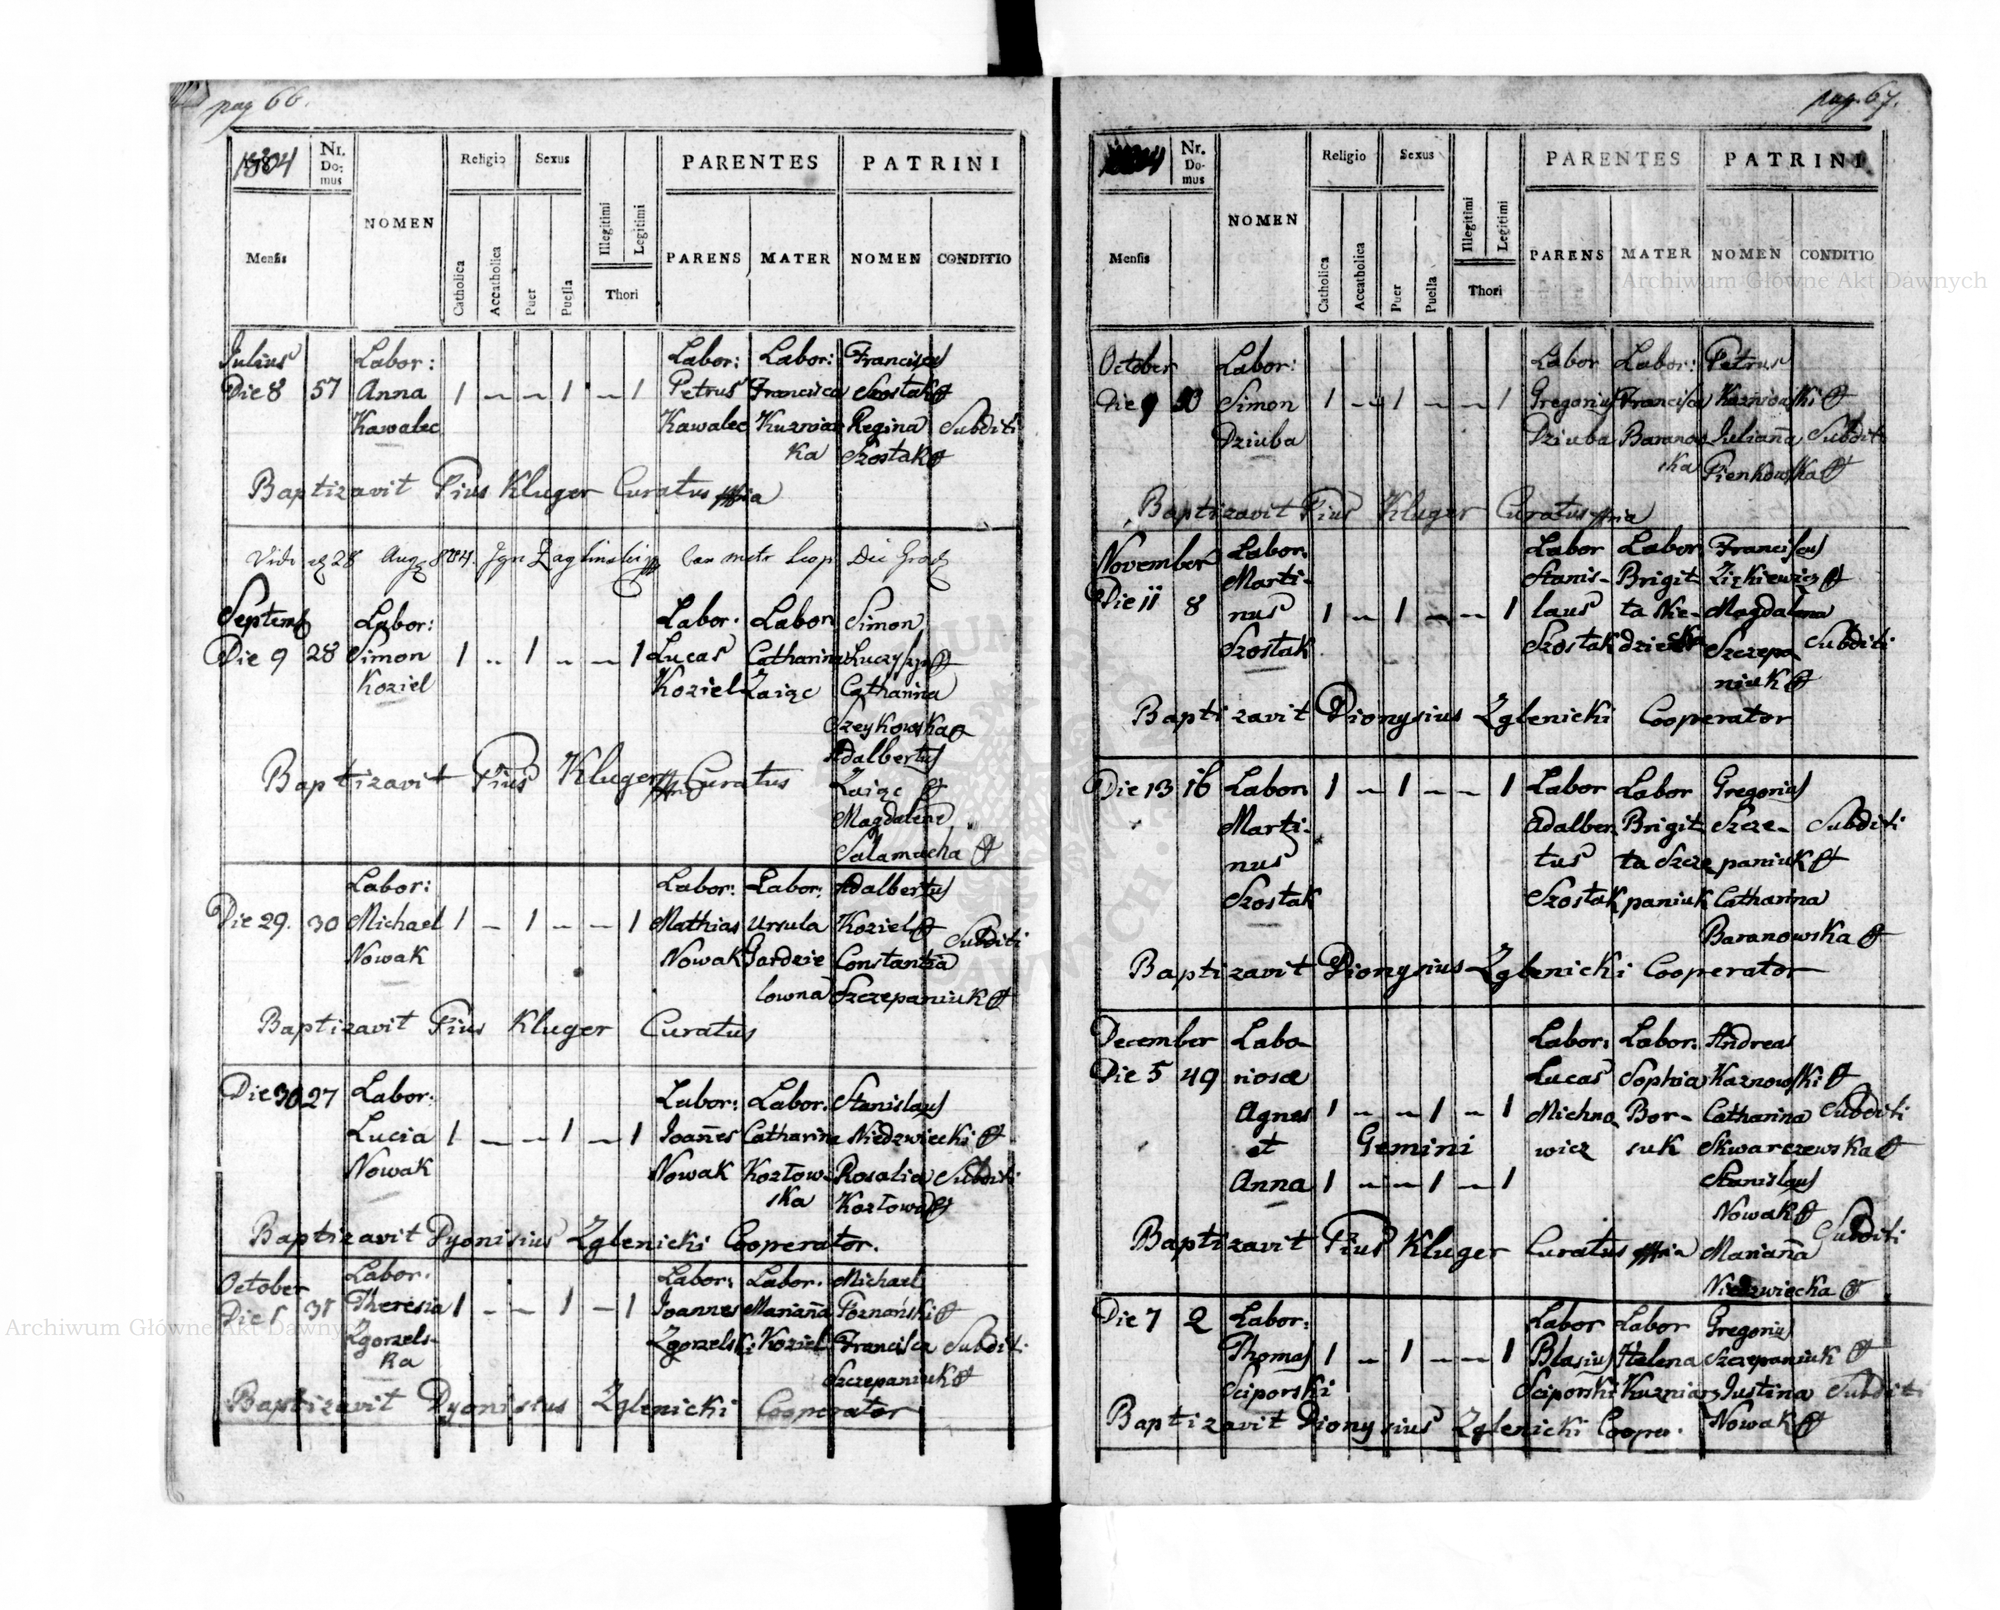 pag 66.
1804
Nr. Do: mus
Religio
Sexus
PARENTES
PATRINI
Mensis
NOMEN
Catholica
Accatholica
Puer
Puella
Illegitimi
Legitimi
Thori
PARENS
MATER
NOMEN
CONDITIO
Julius Labor: Labor: Labor: Franciscus
Die 8 57 Anna 1 – – 1 – 1 Petrus Francisca Szostak
Kawalec Kawalec Kuzniar Regina Subditi
ka Szostak
Baptizavit Pius Kluger Curatus mpria
Vidi 28 Aug 804.
Septemb Labor: Labor. Labor Simon
Die 9 28 Simon 1 – 1 – – 1 Lucas Catharina
Koziel Koziel Zaiąc Catharina
Szeykowska
Adalbertus
Baptizavit Pius Kluger mpria Curatus Zaiąc
Magdalena
Salamacha
Labor: Labor: Labor: Adalbertus
Die 29. 30 Michael 1 – 1 – – 1 Mathias Ursula Koziel Subditi
Nowak Nowak Gardzie Constantia
lowna Szczepaniuk
Baptizavit Pius Kluger Curatus
Die 30 27 Labor: Labor: Labor. Stanislaus
Lucia 1 – – 1 – 1 Joañes Catharina Niedzwiecki
Nowak Nowak Kozłow- Rosalia Subditi
ska
Baptizavit Dyonisius Zglenicki Cooperator.
October Labor. Labor: Labor. Michael
Die Theresia 1 – – 1 – 1 Joannes Mariaña Poznański
Zgorzels- Zgorzelski Koziel Francisca Subditi
ka Szczepaniuk
Baptizavit Dyonisius Zglenicki Cooperator
pag. 67.
Nr. Do- mus
Religio
Sexus
PARENTES
PATRINI
Mensis
NOMEN
Catholica
Accatholica
Puer
Puella
Illegitimi
Legitimi
Thori
PARENS
MATER
NOMEN
CONDITIO
October Labor: Labor Labor: Petrus
Die 9 Simon 1 – 1 – – 1 Gregorius Francisca Kaznowski
Dziuba Dziuba Baranow Juliaña Subditi
ska Pienkowska
Baptizavit Pius Kluger Curatus mpria
November Labor. Labor Labor. Franciscus
Marti- Stanis- Brigit
Die 11 8 nus 1 – 1 – – 1 laus ta Nie- Magdalena
Szostak Szostak dzielska Szczepa Subditi
niuk
Baptizavit Dionysius Zglenicki Cooperator
Die 13 16 Labor 1 – 1 – – 1 Labor Labor Gregorius
Marti- Adalber Brigit Szcze- Subditi
nus tus ta Szcze paniuk
Szostak Szostak paniuk Catharina
Baranowska
Baptizavit Dionysius Zglenicki Cooperator
December Labo- Labor: Labor. Andreas
Die 5 49 riosæ Lucas Sophia Kaznowski
Agnes 1 – – 1 – 1 Michno Bor- Catharina Subditi
et Gemini wicz suk Skwarczewska
Anna 1 – – 1 – 1 Stanislaus
Nowak
Baptizavit Pius Kluger Curatus mpria Mariaña Subditi
Niedzwiecka
Die 7 2 Labor: Labor Labor Gregorius
Thomas 1 – 1 – – 1 Blasius Helena Szczepaniuk
Sciporski Sciporski Kuzniarz Justina Subditi
Baptizavit Dionysius Zglenicki Cooper. Nowak
Archiwum Główne Akt Dawnych
Archiwum Główne Akt Dawnych